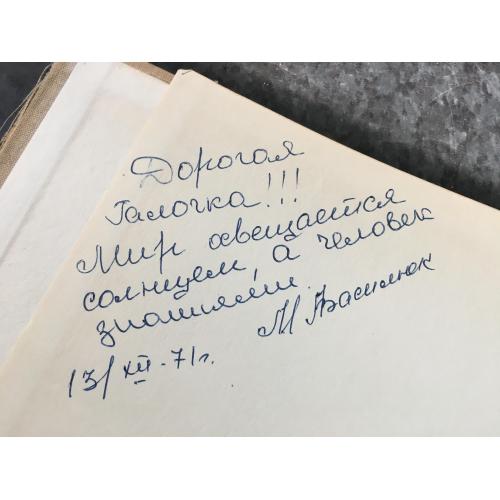 Дорогая
Галочка!!!
Мир освещается
солнцем, а человек
знаниями.
М Василюк
13/XII-71г.